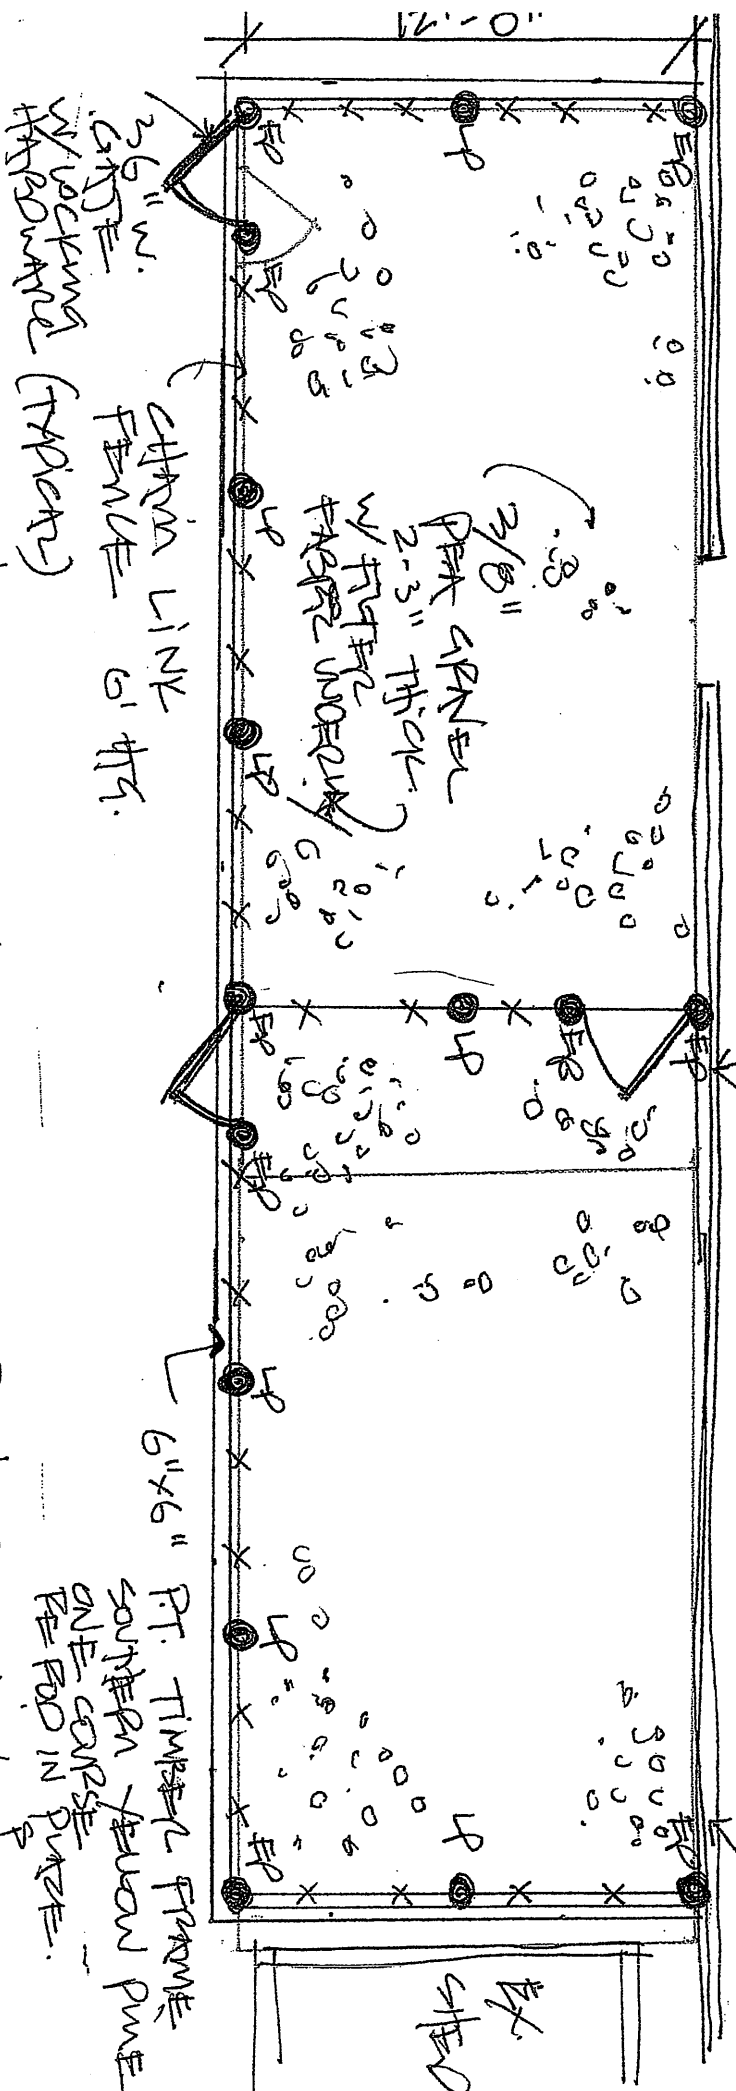 12'-0"
EP
LP
EP
36" W.
GATE
W/ LOCKING
HARDWARE (TYPICAL)
EP
CHAIN LINK
FENCE 6' HTG.
LP
3/8"
PEA GRAVEL
2-3" THICK
W/ FILTER
FABRIC UNDER
LP
EP
LP
EP
EP
EP
LP
6"x6" P.T. TIMBER FRAME
SOUTHERN YELLOW PINE
ONE COURSE
RE-ROD IN PLACE.
LP
EP
LP
EP
EX.
SHED